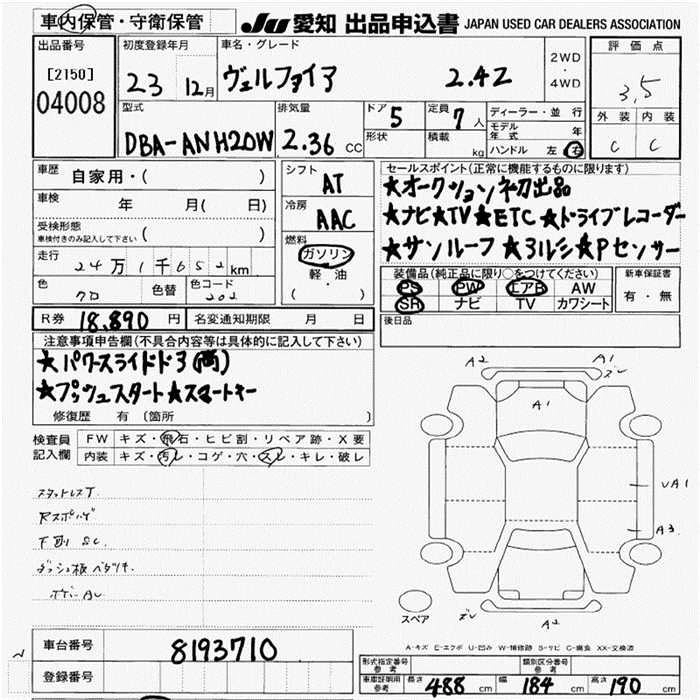 車内保管・守衛保管
JU 愛知 出品申込書 JAPAN USED CAR DEALERS ASSOCIATION
出品番号
[2150]
04008
初度登録年月
23 12月
車名・グレード
ヴェルファイア 2.4Z
2WD
・
4WD
評価点
3.5
外装 内装
C C
型式
DBA-ANH20W
排気量
2.36 CC
ドア 5
定員 7人
形状
積載 kg
ディーラー・並行
モデル年式 年
ハンドル 左・右
車歴
自家用・( )
車検 年 月( 日)
受検形態
車検付きのみ記入して下さい ( )
走行
24万1千652km
色 クロ
色替
色コード 202
シフト AT
冷房 AAC
燃料
ガソリン
軽・油
( )
セールスポイント(正常に機能するものに限ります)
★オークション初出品
★ナビ★TV★ETC★ドライブレコーダー
★サンルーフ★3ルミ★Pセンサー
装備品(純正品に限り○をつけてください)
PS PW エアB AW
SR ナビ TV カワシート
新車保証書
有・無
R券 18,890 円
名変通知期限 月 日
後日品
注意事項申告欄(不具合内容等は具体的に記入して下さい)
★パワースライドドア(両)
★プッシュスタート★スマートキー
修復歴 有(箇所 )
検査員
記入欄
FW キズ・飛石・ヒビ割・リペア跡・X要
内装 キズ・汚レ・コゲ・穴・スレ・キレ・破レ
スタットレスT.
Rスポハゲ
下廻 SC.
ダッシュ板ベタツキ.
ボデーAU
A2 A1
ズレ
A1
UA1
A3
スペア
ズレ
A2
A-キズ E-エクボ U-凹み W-補修跡 S-サビ C-腐食 XX-交換済
車台番号 8193710
登録番号
形式指定番号
参考
類別区分番号
参考
車庫証明用
参考
長さ 488 cm 幅 184 cm 高さ 190 cm